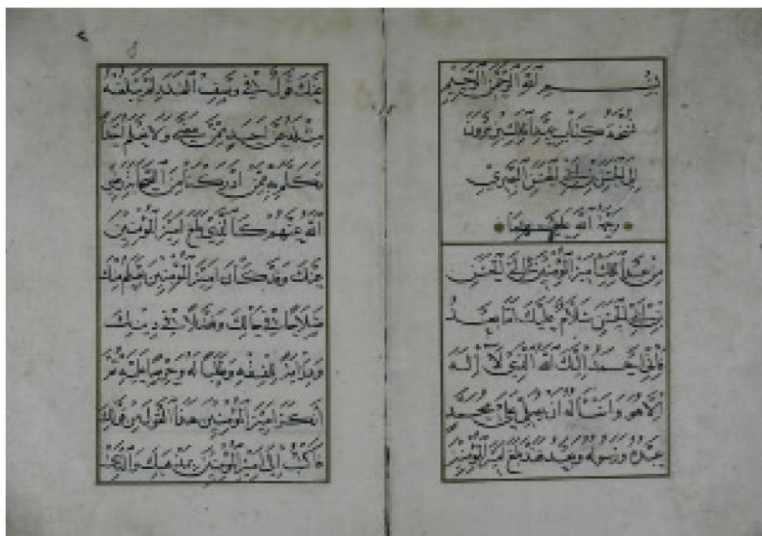 بسم الله الرحمن الرحيم
نسخة كتاب عبد الملك بن مروان
إلى الحسن بن أبي الحسن البصري
رحمة الله عليهما
من عبد الملك أمير المؤمنين إلى الحسن
بن أبي الحسن سلام عليك أما بعد
فإني أحمد إليك الله الذي لا إله
إلا هو وأسأله أن يصلي على محمد
عبده ورسوله وبعد فقد بلغ أمير المؤمنين
عنك قول في وصف القدر لم يبلغه
مثله عن أحد ممن مضى ولا نعلم أحدا
تكلم به ممن أدركنا من الصحابة رضي
الله عنهم كالذي بلغ أمير المؤمنين
عنك وقد كان أمير المؤمنين يعلم منك
صلاحا في حالك وفضلا في دينك
ودراية للفقه وطلبا له وحرصا عليه ثم
أنكر أمير المؤمنين هذا القول من قولك
فاكتب إلى أمير المؤمنين بمذهبك والذي